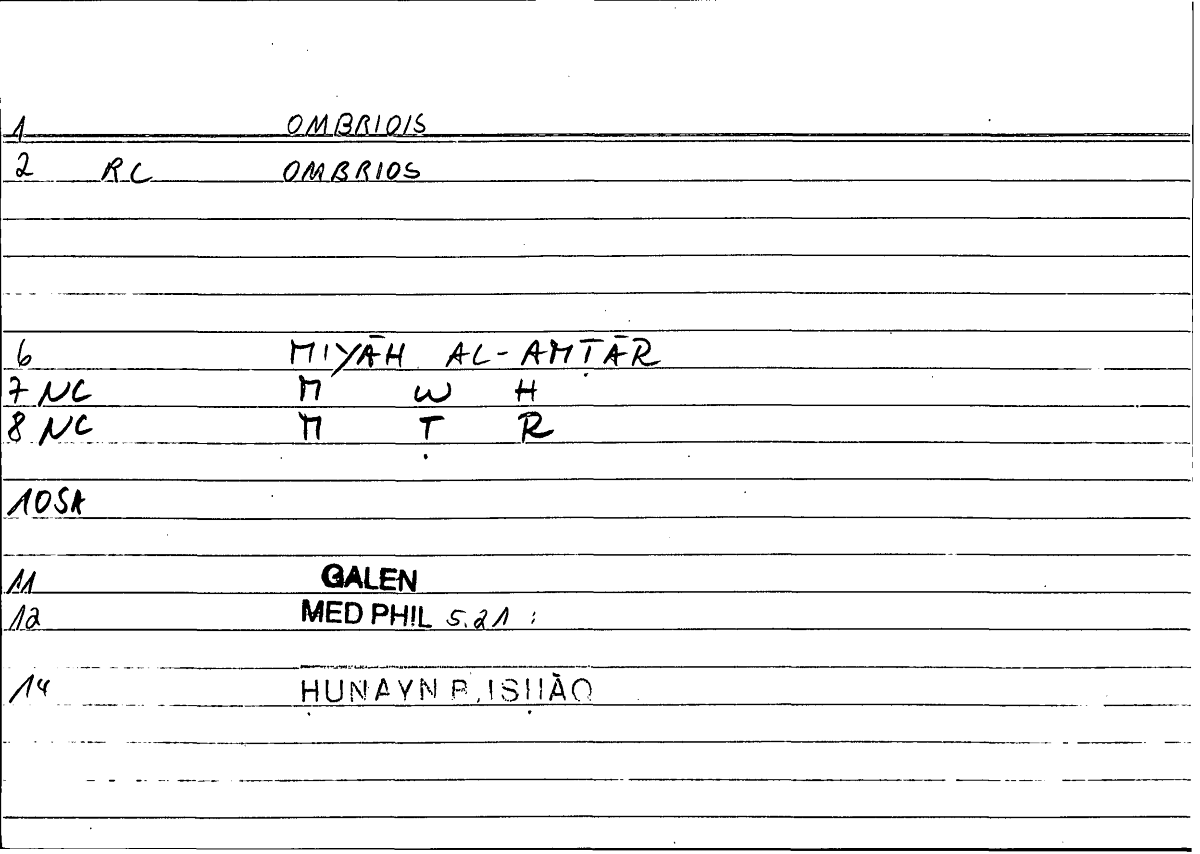 1 OMBRIOIS
2 RC OMBRIOS
6 MIYĀH AL-AMṬĀR
7 NC M W H
8 NC M Ṭ R
10SA
11 GALEN
12 MED PHIL 5.21 :
14 ḤUNAYN B. ISḤĀQ